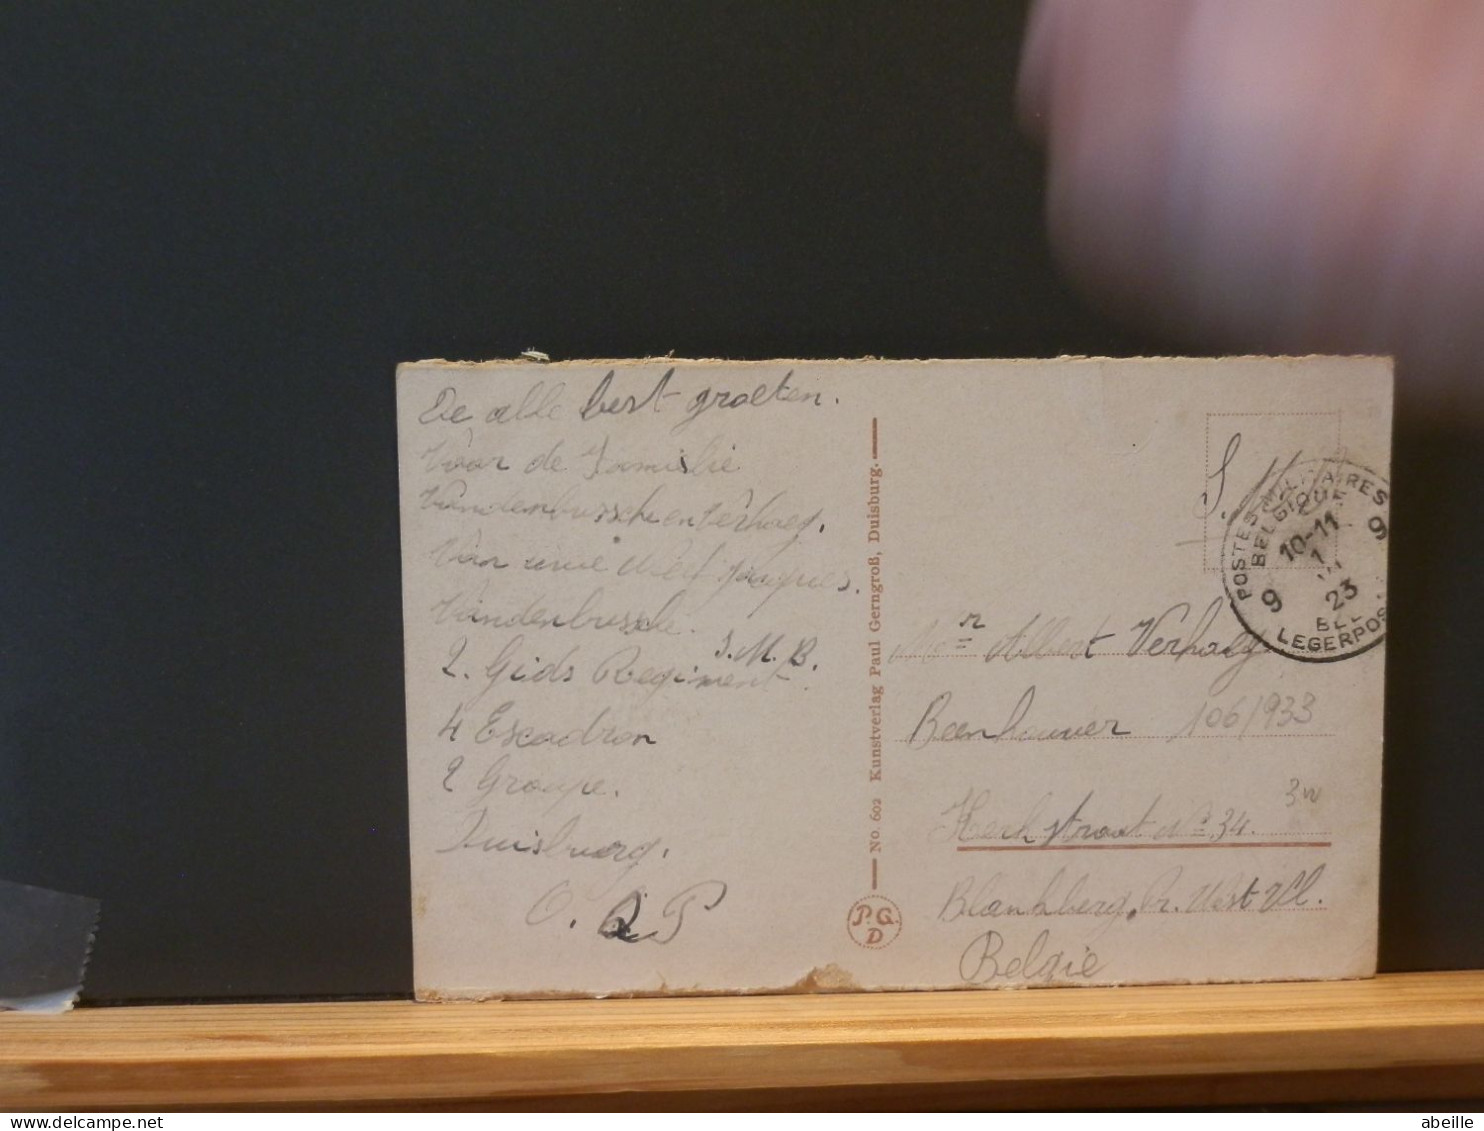 De alle best groeten.
Voor de Familie
Vandenbussche en Verhaeg.
Van uwe Neef Jacques.
Vandenbussche.
J.M.B.
2. Gids Regiment
4 Escadron
2 Groupe.
Duisburg.
O.
No. 602 Kunstverlag Paul Gerngroß, Duisburg.
P.G.
D
S.M.
POSTES MILITAIRES
BELGIQUE
10-11
1
23
9 9
LEGERPOST
Mr Albert Verhaeg
Beenhauwer 106/933
Kerkstraat No 34.
Blankberg, Pr. West Vl.
België
abeille